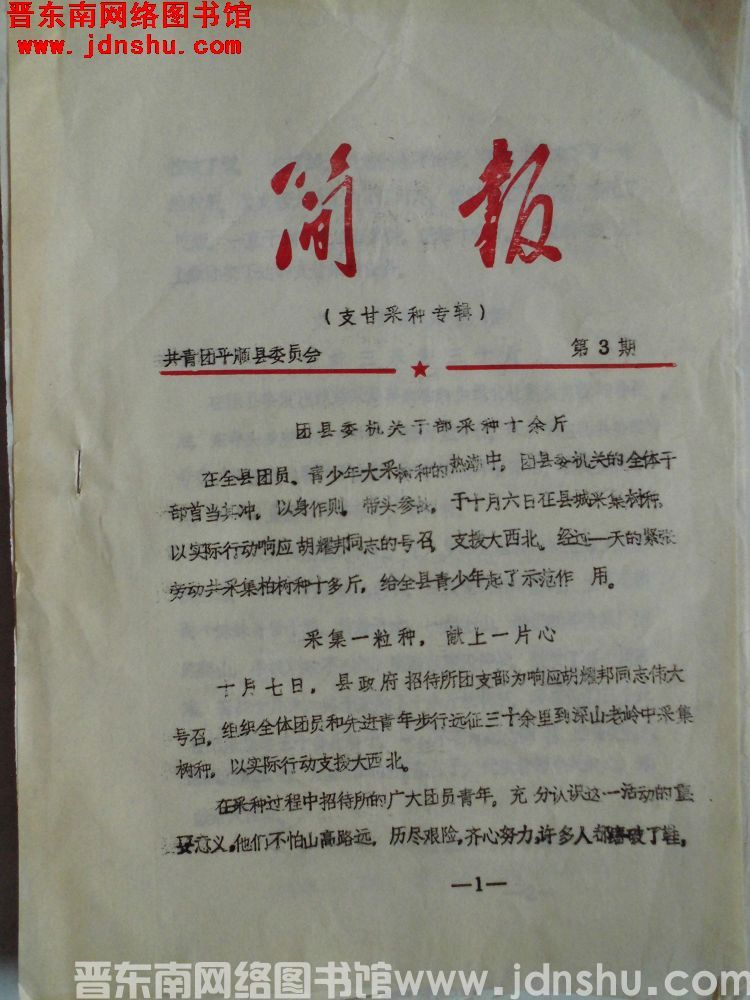 晋东南网络图书馆
www.jdnshu.com
简报
(支甘采种专辑)
共青团平顺县委员会
第3期
团县委机关干部采种十余斤
在全县团员、青少年大采树种的热潮中，团县委机关的全体干
部首当其冲，以身作则，带头参战，于十月六日在县城采集树种，
以实际行动响应胡耀邦同志的号召，支援大西北。经过一天的紧张
劳动共采集柏树种十多斤，给全县青少年起了示范作 用。
采集一粒种，献上一片心
十月七日，县政府招待所团支部为响应胡耀邦同志伟大
号召，组织全体团员和先进青年步行远征三十余里到深山老岭中采集
树种，以实际行动支援大西北。
在采种过程中招待所的广大团员青年，充分认识这一活动的重
要意义，他们不怕山高路远，历尽艰险，齐心努力，许多人都磨破了鞋，
—1—
晋东南网络图书馆www.jdnshu.com